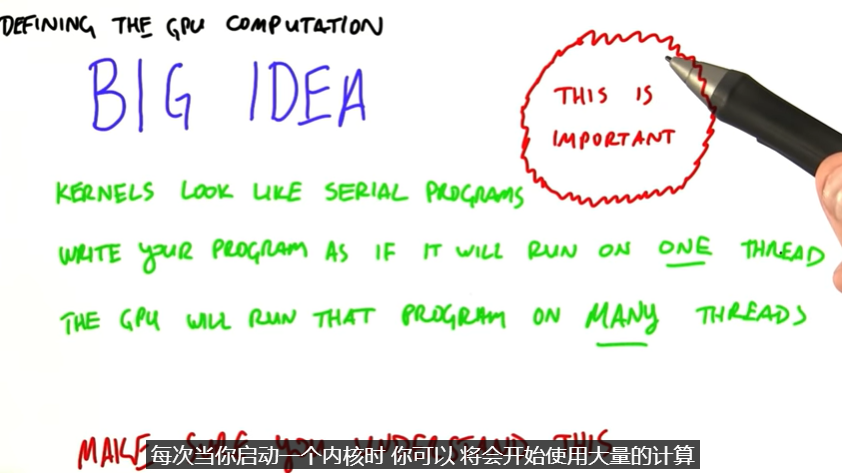 DEFINING THE GPU COMPUTATION
BIG IDEA
THIS IS
IMPORTANT
KERNELS LOOK LIKE SERIAL PROGRAMS
WRITE YOUR PROGRAM AS IF IT WILL RUN ON ONE THREAD
THE GPU WILL RUN THAT PROGRAM ON MANY THREADS
MAKE SURE YOU UNDERSTAND THIS
每次当你启动一个内核时 你可以 将会开始使用大量的计算